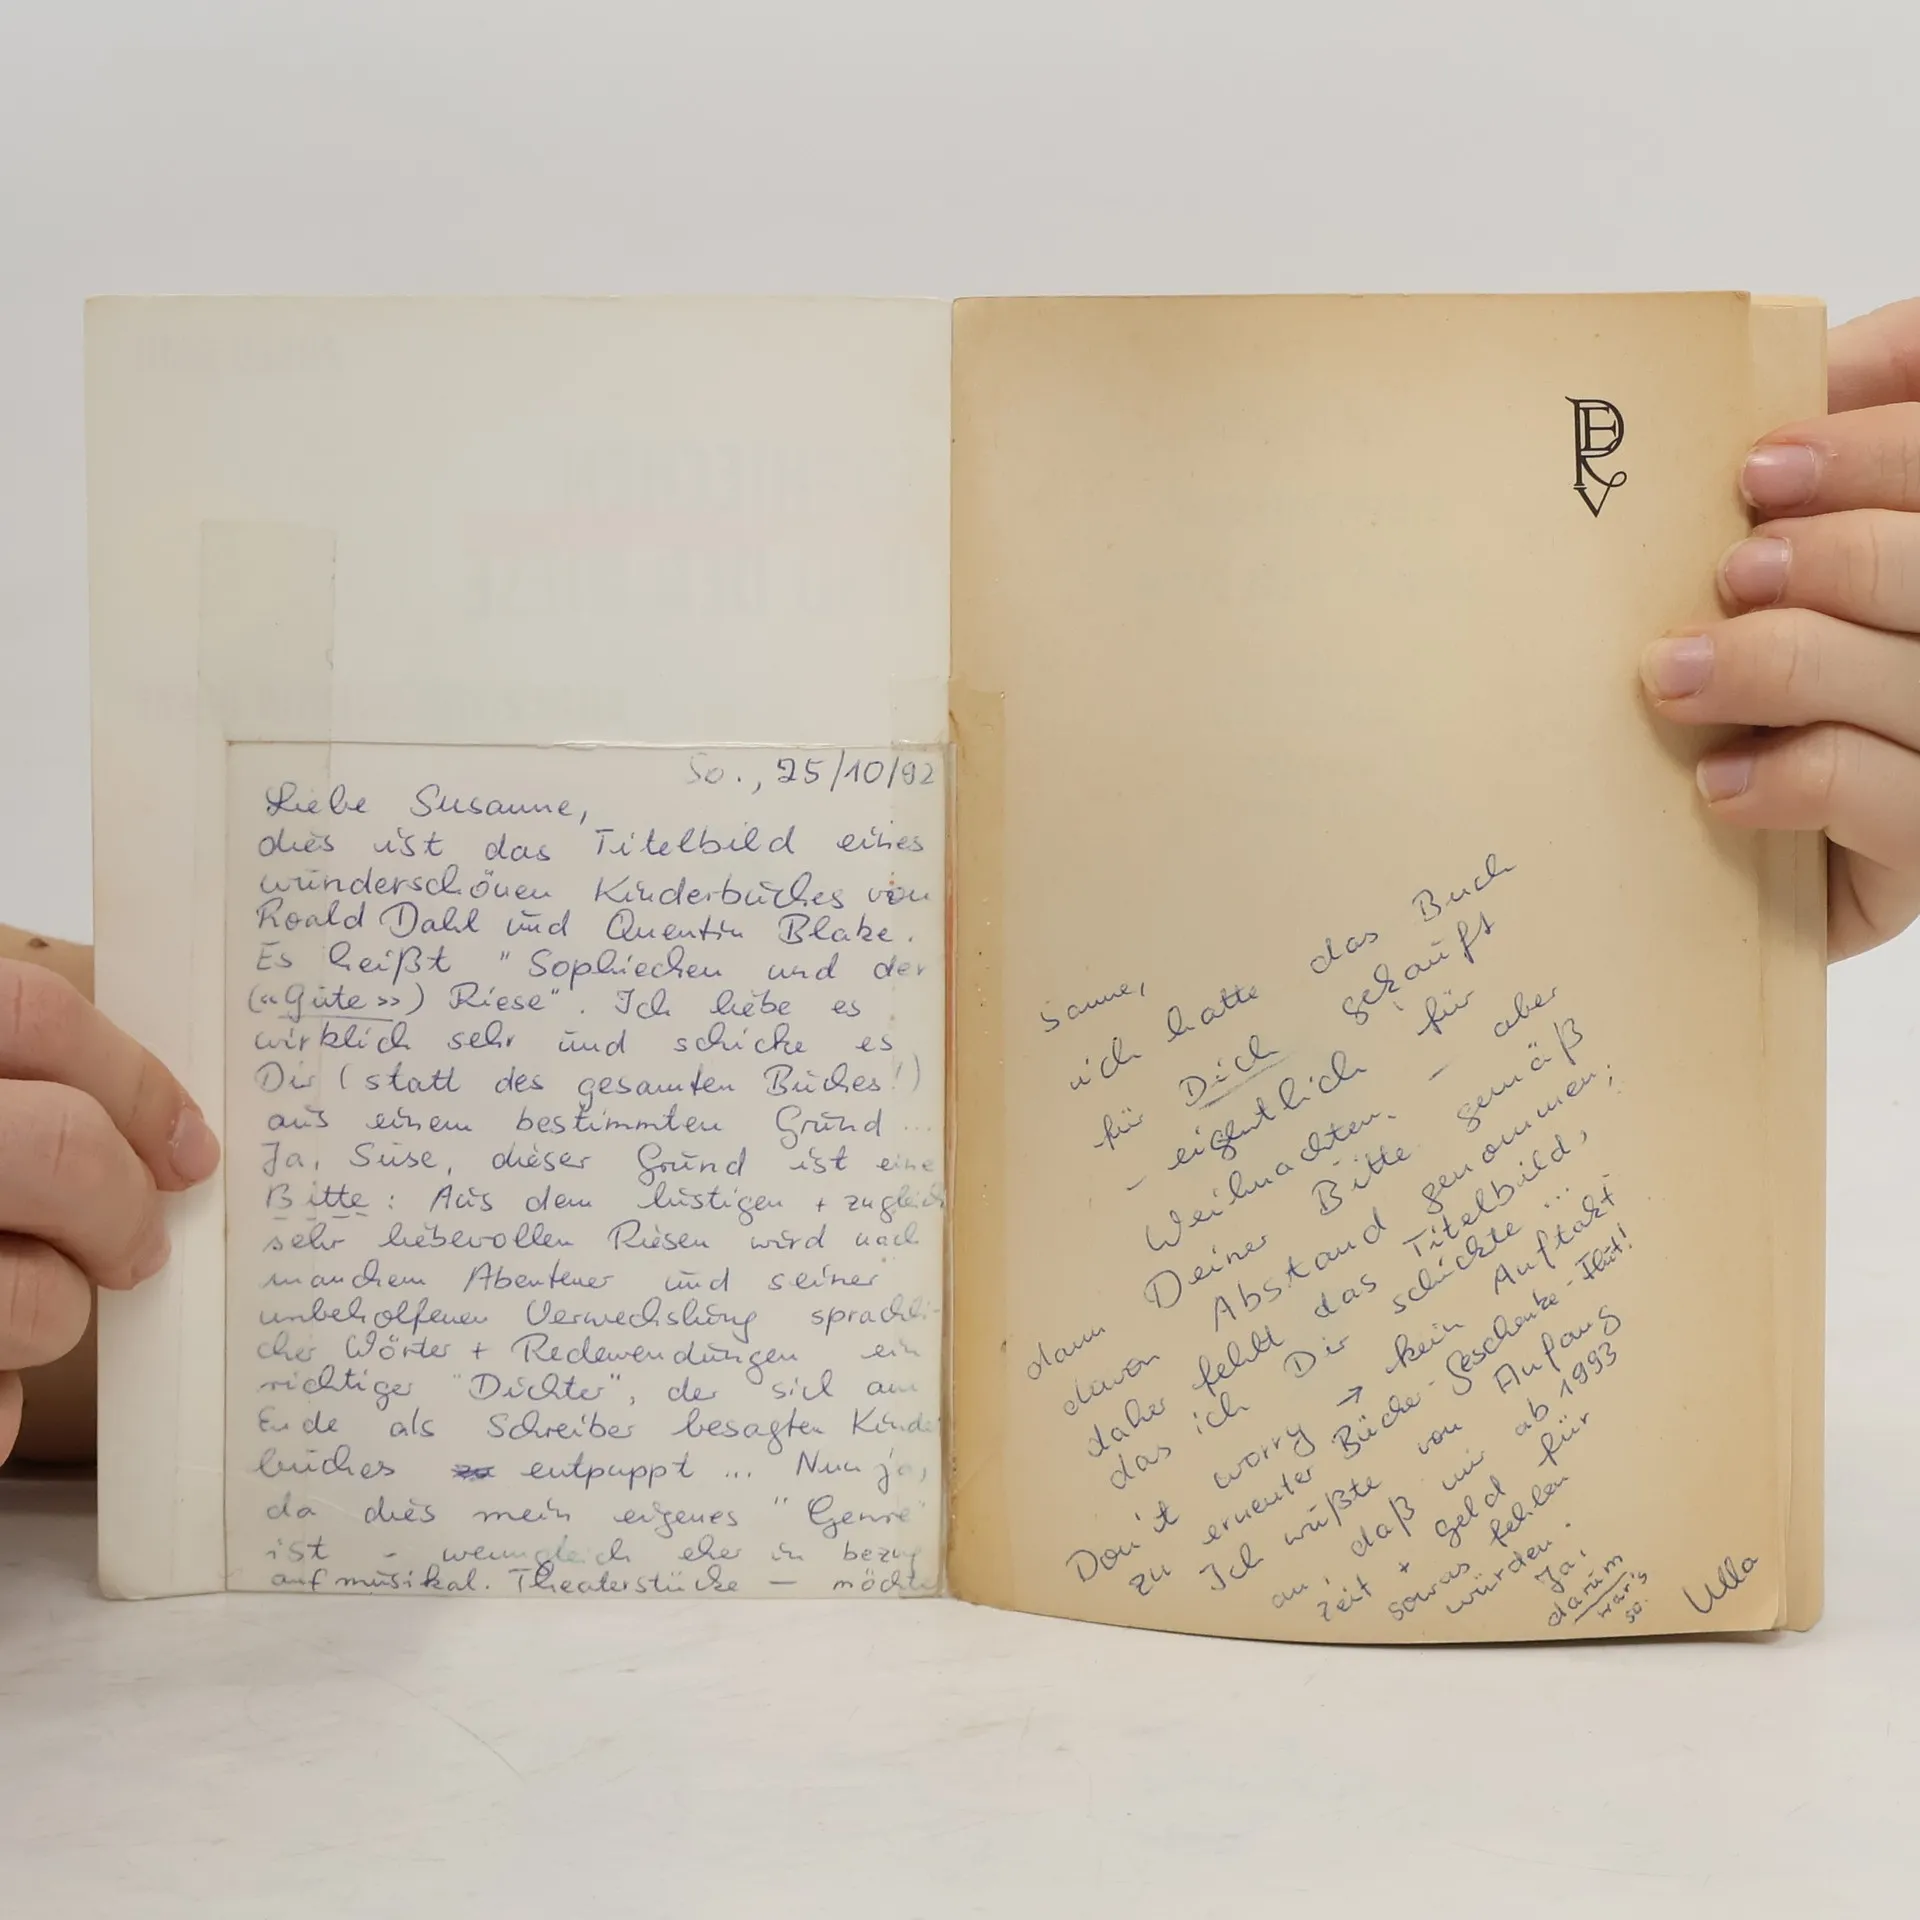 So., 25/10/92
Liebe Susanne,
dies ist das Titelbild eines
wunderschönen Kinderbuches von
Roald Dahl und Quentin Blake.
Es heißt "Sophiechen und der
(«Gute») Riese". Ich liebe es
wirklich sehr und schicke es
Dir (statt des gesamten Buches!)
aus einem bestimmten Grund ...
Ja, Suse, dieser Grund ist eine
Bitte: Aus dem lustigen + zugleich
sehr liebevollen Riesen wird nach
manchem Abenteuer und seiner
unbeholfenen Verwechslung sprachli-
cher Wörter + Redewendungen ein
richtiger "Dichter", der sich am
Ende als Schreiber besagten Kinder
buches entpuppt ... Nun ja,
da dies mein eigenes "Genre"
ist - wenngleich eher in bezug
auf musikal. Theaterstücke — möchte
PEV
Sanne,
ich hatte das Buch
für Dich gekauft
- eigentlich für
Weihnachten. - aber
Deiner Bitte gemäß
dann Abstand genommen;
davon
daher fehlt das Titelbild,
das ich Dir schickte ...
Don't worry → kein Auftakt
zu erneuter Bücher-Geschenke-Flut!
Ich wüßte von Anfang
an, daß mir ab 1993
Zeit + Geld für
sowas fehlen
würden.
Ja,
darum
war's
so.
Ulla